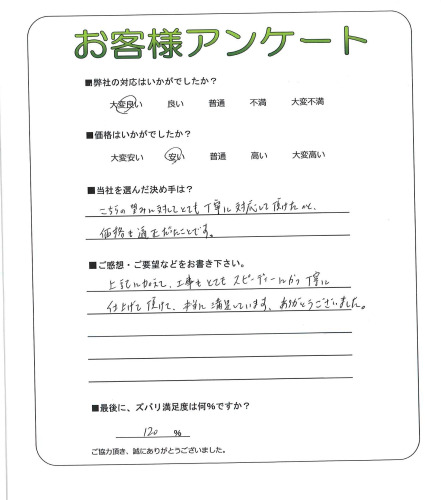 お客様アンケート
■弊社の対応はいかがでしたか？
大変良い 良い 普通 不満 大変不満
■価格はいかがでしたか？
大変安い 安い 普通 高い 大変高い
■当社を選んだ決め手は？
こちらの望みに対してとても丁寧に対応して頂けたのと、
価格も適正だったことです。
■ご感想・ご要望などをお書き下さい。
上記に加えて、工事もとてもスピーディーかつ丁寧に
仕上げて頂けて、本当に満足しています。ありがとうございました。
■最後に、ズバリ満足度は何％ですか？
120 ％
ご協力頂き、誠にありがとうございました。